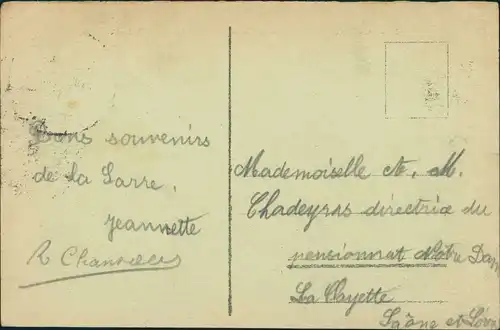 Bons souvenirs
de la Sarre.
Jeannette
R
Mademoiselle A. M.
Chadeyras directrice du
pensionnat Notre Dam
La Clayette
Saône et Loire